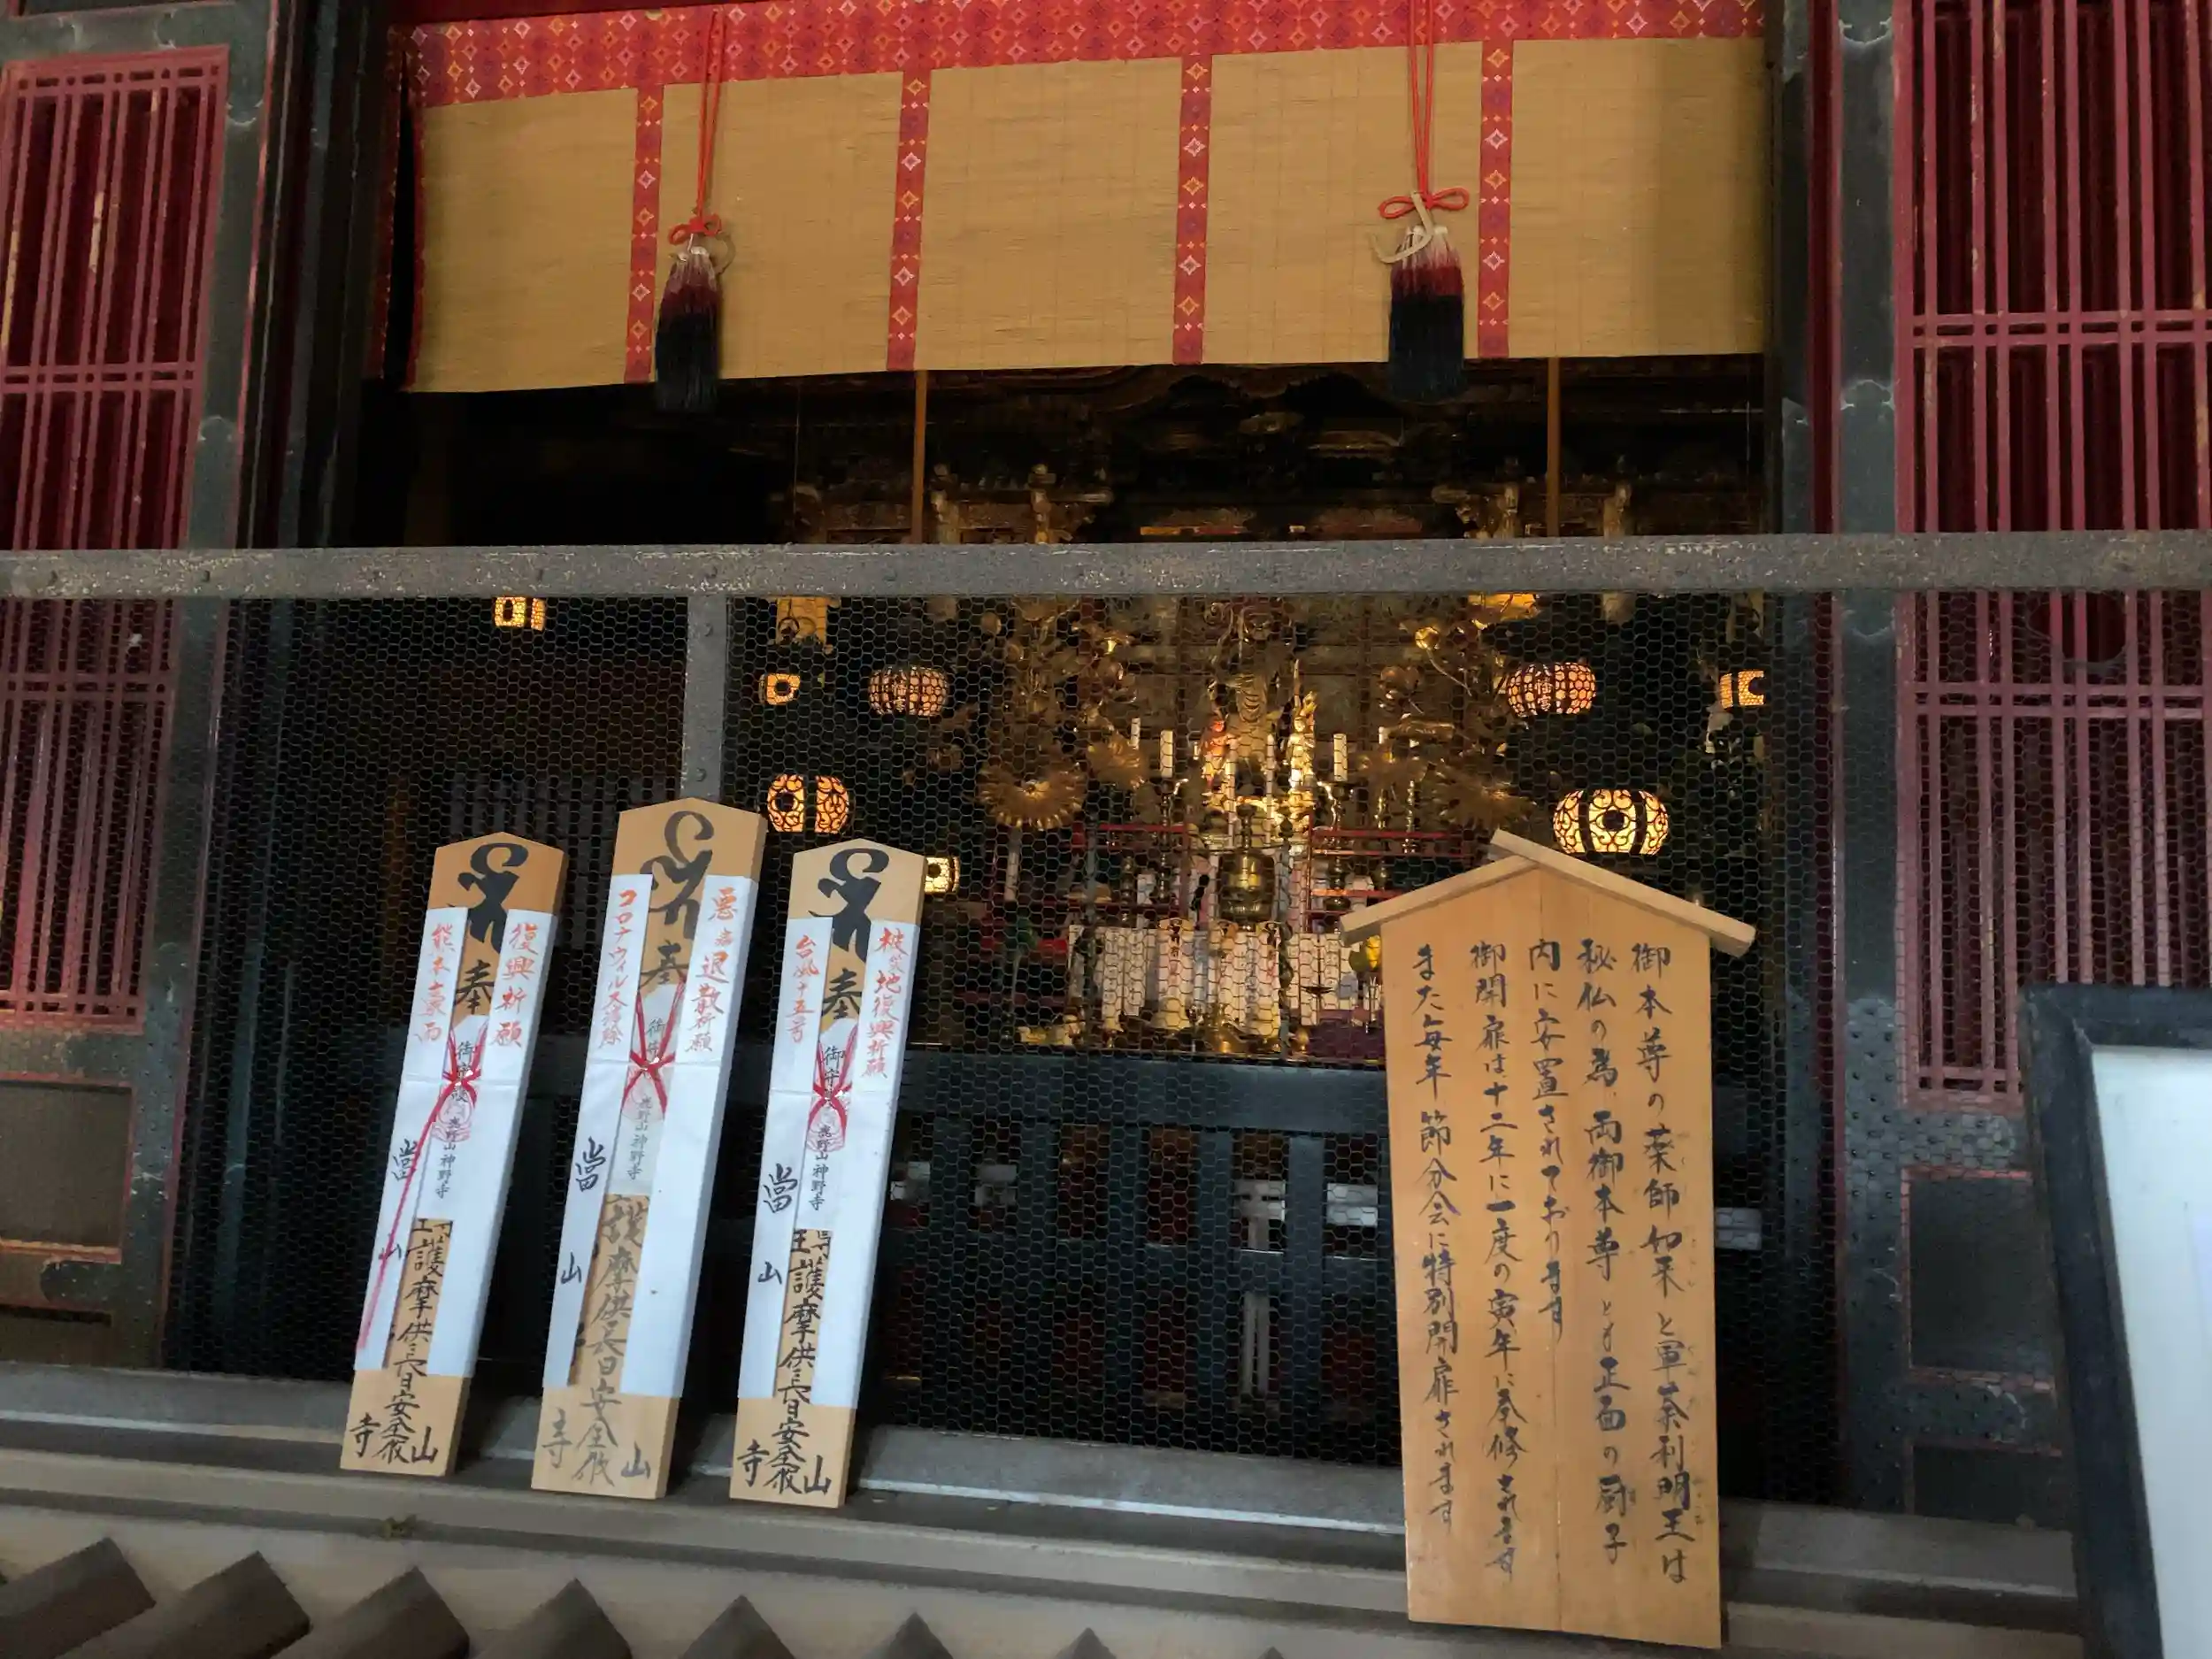 復興祈願
熊本豪雨
奉
御守護
鹿野山神野寺
當
山
護摩供
日安全祓
山
寺
悪
退散祈願
コロナウィルス
奉
鹿野山神野寺
當
山
護摩供
日安全祓
山
寺
被災地復興祈願
台風十五号
奉
御守護
鹿野山神野寺
當
山
護摩供
日安全祓
山
寺
御本尊の薬師如来と軍荼利明王は
秘仏の為、両御本尊とも正面の厨子
内に安置されております
御開扉は十二年に一度の寅年に奉修されます
また毎年節分会に特別開扉されます